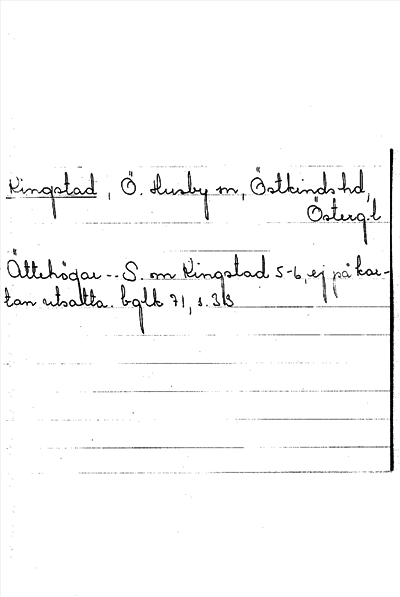 Kingstad, Ö. Husby sn, Östkinds hd,
Österg.l
Ättehögar -- S. om Kingstad 5-6, ej på kar-
tan utsatta. bglb 71, s. 313